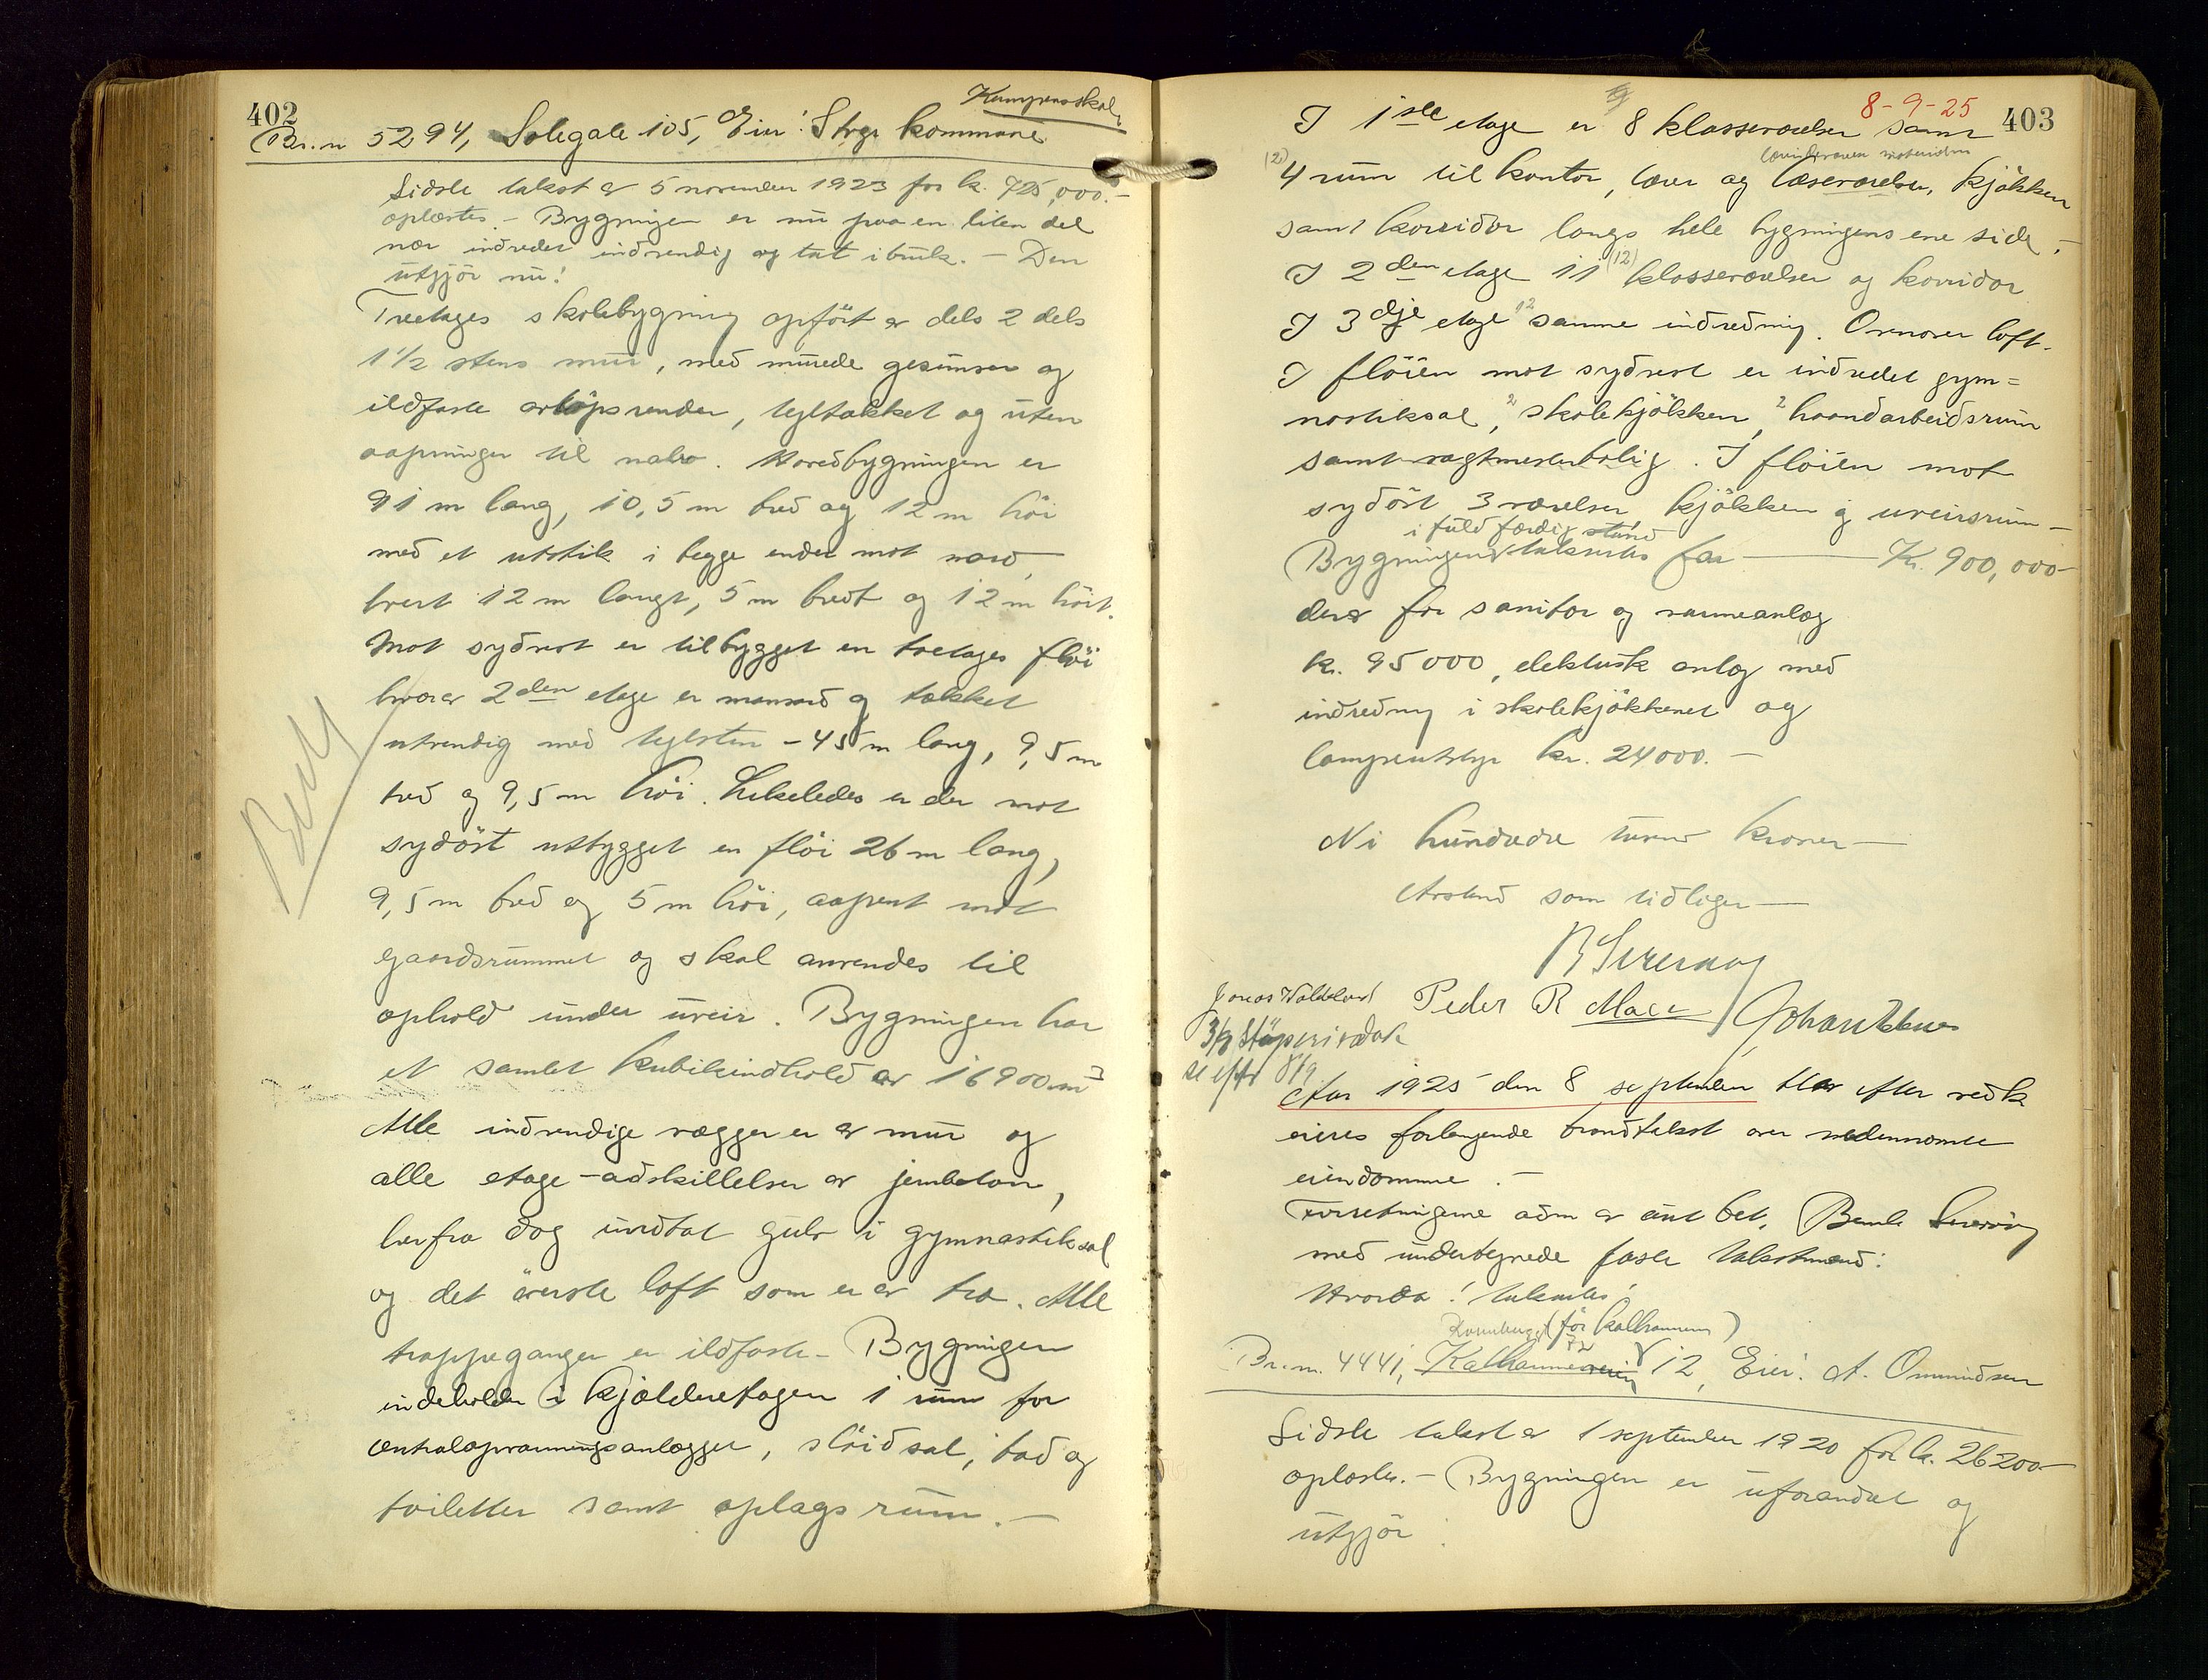 402
Kampens skole
Br.n 5294, Solegate 105, Eier: Stvgr kommune
Sidste takst av 5 november 1923 for kr. 725,000.-
oplæstes. - Bygningen er nu paa en liten del
nær indredet indvendig og tat i bruk. - Den
utgjör nu:
Treetages skolebygning opfört av dels 2 dels
1 1/2 stens mur, med murede gesimser og
ildfaste avlöpsrender, tegltækket og uten
aapninger til nabo. Hovedbygningen er
91 m lang, 10,5 m bred og 12 m höi
med et utstik i begge ender mot nord,
hvert 12 m langt, 5 m bredt og 12 m höit.
Mot sydvest er tilbygget en toetages flöi
hvorav 2den etage er mansard og tækket
utvendig med teglsten - 45 m lang, 9,5 m
bred og 9,5 m höi. Likeledes er der mot
sydöst utbygget en flöi 26 m lang,
9,5 m bred og 5 m höi, aapent mot
gaardsrummet og skal anvendes til
ophold under uveir. Bygningen har
et samlet kubikindhold av 16900 m3
Alle indvendige vægger er av mur og
alle etage-adskillelser av jernbeton,
herfra dog undtat gulv i gymnastiksal
og det överste loft som er av træ. Alle
trappeganger er ildfaste - Bygningen
indeholder i kjælderetagen 1 rum for
centralopvarmningsanlægget, slöidsal, bad og
toiletter samt oplagsrum. -
403
8-9-25
I 1ste etage er 8 klasseværelser samt
(2)
4 rum til kontor, lærer og læseværelser, kjökken
samt korridor langs hele bygningens ene side,-
I 2den etage 11 (12) klasseværelser og korridor
I 3dje etage 12 samme indredning. Ovenover loft.
I flöien mot sydvest er indredet gym=
nastiksal, 2 skolekjökken, 2 haandarbeidsrum
samt vagtmesterbolig. I flöien mot
sydöst 3 værelser kjökken og uveirsrum -
i fuld færdig stand
Bygningen takseres for Kr. 900,000-
derav for sanitær og varmeanlæg
kr. 95000, elektrisk anlæg med
indredning i skolekjökkenet og
lampeutstyr kr. 24000. -
Ni hundrede tusen kroner -
Avstand som tidligere -
Peder R
Aar 1925 den 8 september blev efter vedk
eieres forlangende brandtakst over nedennævnte
eiendomme. -
Forretningerne adm av
med undertegnede faste takstmænd:
Hvorda: takseres:
(før Kalhammeren)
Br.n. 4441, Kalhammerveien 12, Eier: A. Ommundsen
Sidste takst av 1 september 1920 for kr. 26200-
oplæstes. - Bygningen er uforandret og
utgjör